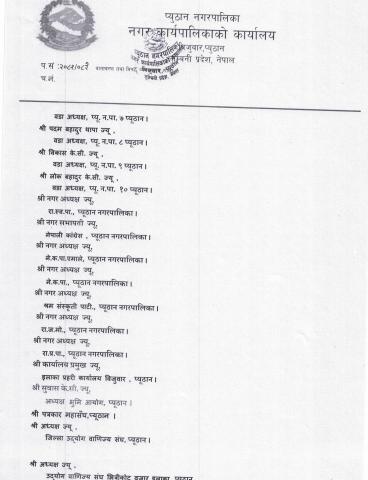 प्यूठान नगरपालिका
नगर कार्यपालिकाको कार्यालय
बिजुवार, प्यूठान
लुम्बिनी प्रदेश, नेपाल
प.सं :२०८१/०८२
च.नं.
वडा अध्यक्ष, प्यू. न.पा. ७ प्यूठान।
श्री पदम बहादुर थापा ज्यू ,
वडा अध्यक्ष, प्यू. न.पा. ८ प्यूठान।
श्री विकास के.सी. ज्यू ,
वडा अध्यक्ष, प्यू. न.पा. ९ प्यूठान।
श्री लोक बहादुर के.सी. ज्यू ,
वडा अध्यक्ष, प्यू. न.पा. १० प्यूठान।
श्री नगर अध्यक्ष ज्यू,
रा.स्व.पा., प्यूठान नगरपालिका।
श्री नगर सभापती ज्यू,
नेपाली कांग्रेस , प्यूठान नगरपालिका।
श्री नगर अध्यक्ष ज्यू,
ने.क.पा.एमाले, प्यूठान नगरपालिका।
श्री नगर अध्यक्ष ज्यू,
ने.क.पा., प्यूठान नगरपालिका।
श्री नगर अध्यक्ष ज्यू,
श्रम संस्कृती पार्टी., प्यूठान नगरपालिका।
श्री नगर अध्यक्ष ज्यू,
रा.ज.मो., प्यूठान नगरपालिका।
श्री नगर अध्यक्ष ज्यू,
रा.प्र.पा., प्यूठान नगरपालिका।
श्री कार्यालय प्रमुख ज्यू,
इलाका प्रहरी कार्यालय बिजुवार , प्यूठान।
श्री सुवास के.सी. ज्यू,
अध्यक्ष भुमि आयोग, प्यूठान।
श्री पत्रकार महासंघ,प्यूठान ।
श्री अध्यक्ष ज्यू ,
जिल्ला उद्योग वाणिज्य संघ, प्यूठान।
श्री अध्यक्ष ज्यू ,
उद्योग वाणिज्य संघ भित्रीकोट बजार इलाका, प्यूठान